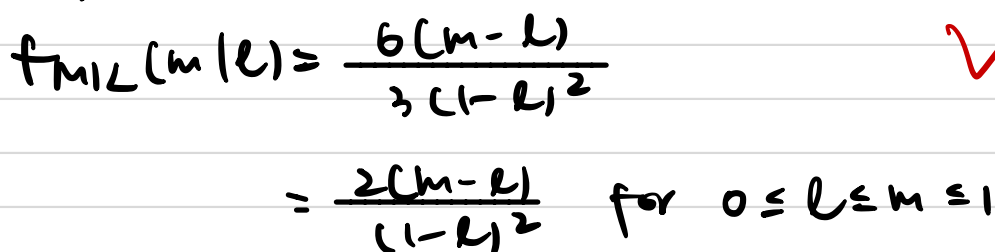 f_{M|L}(m|l) = \frac{6(m-l)}{3(1-l)^2} ✓
= \frac{2(m-l)}{(1-l)^2} for 0 ≤ l ≤ m ≤ 1